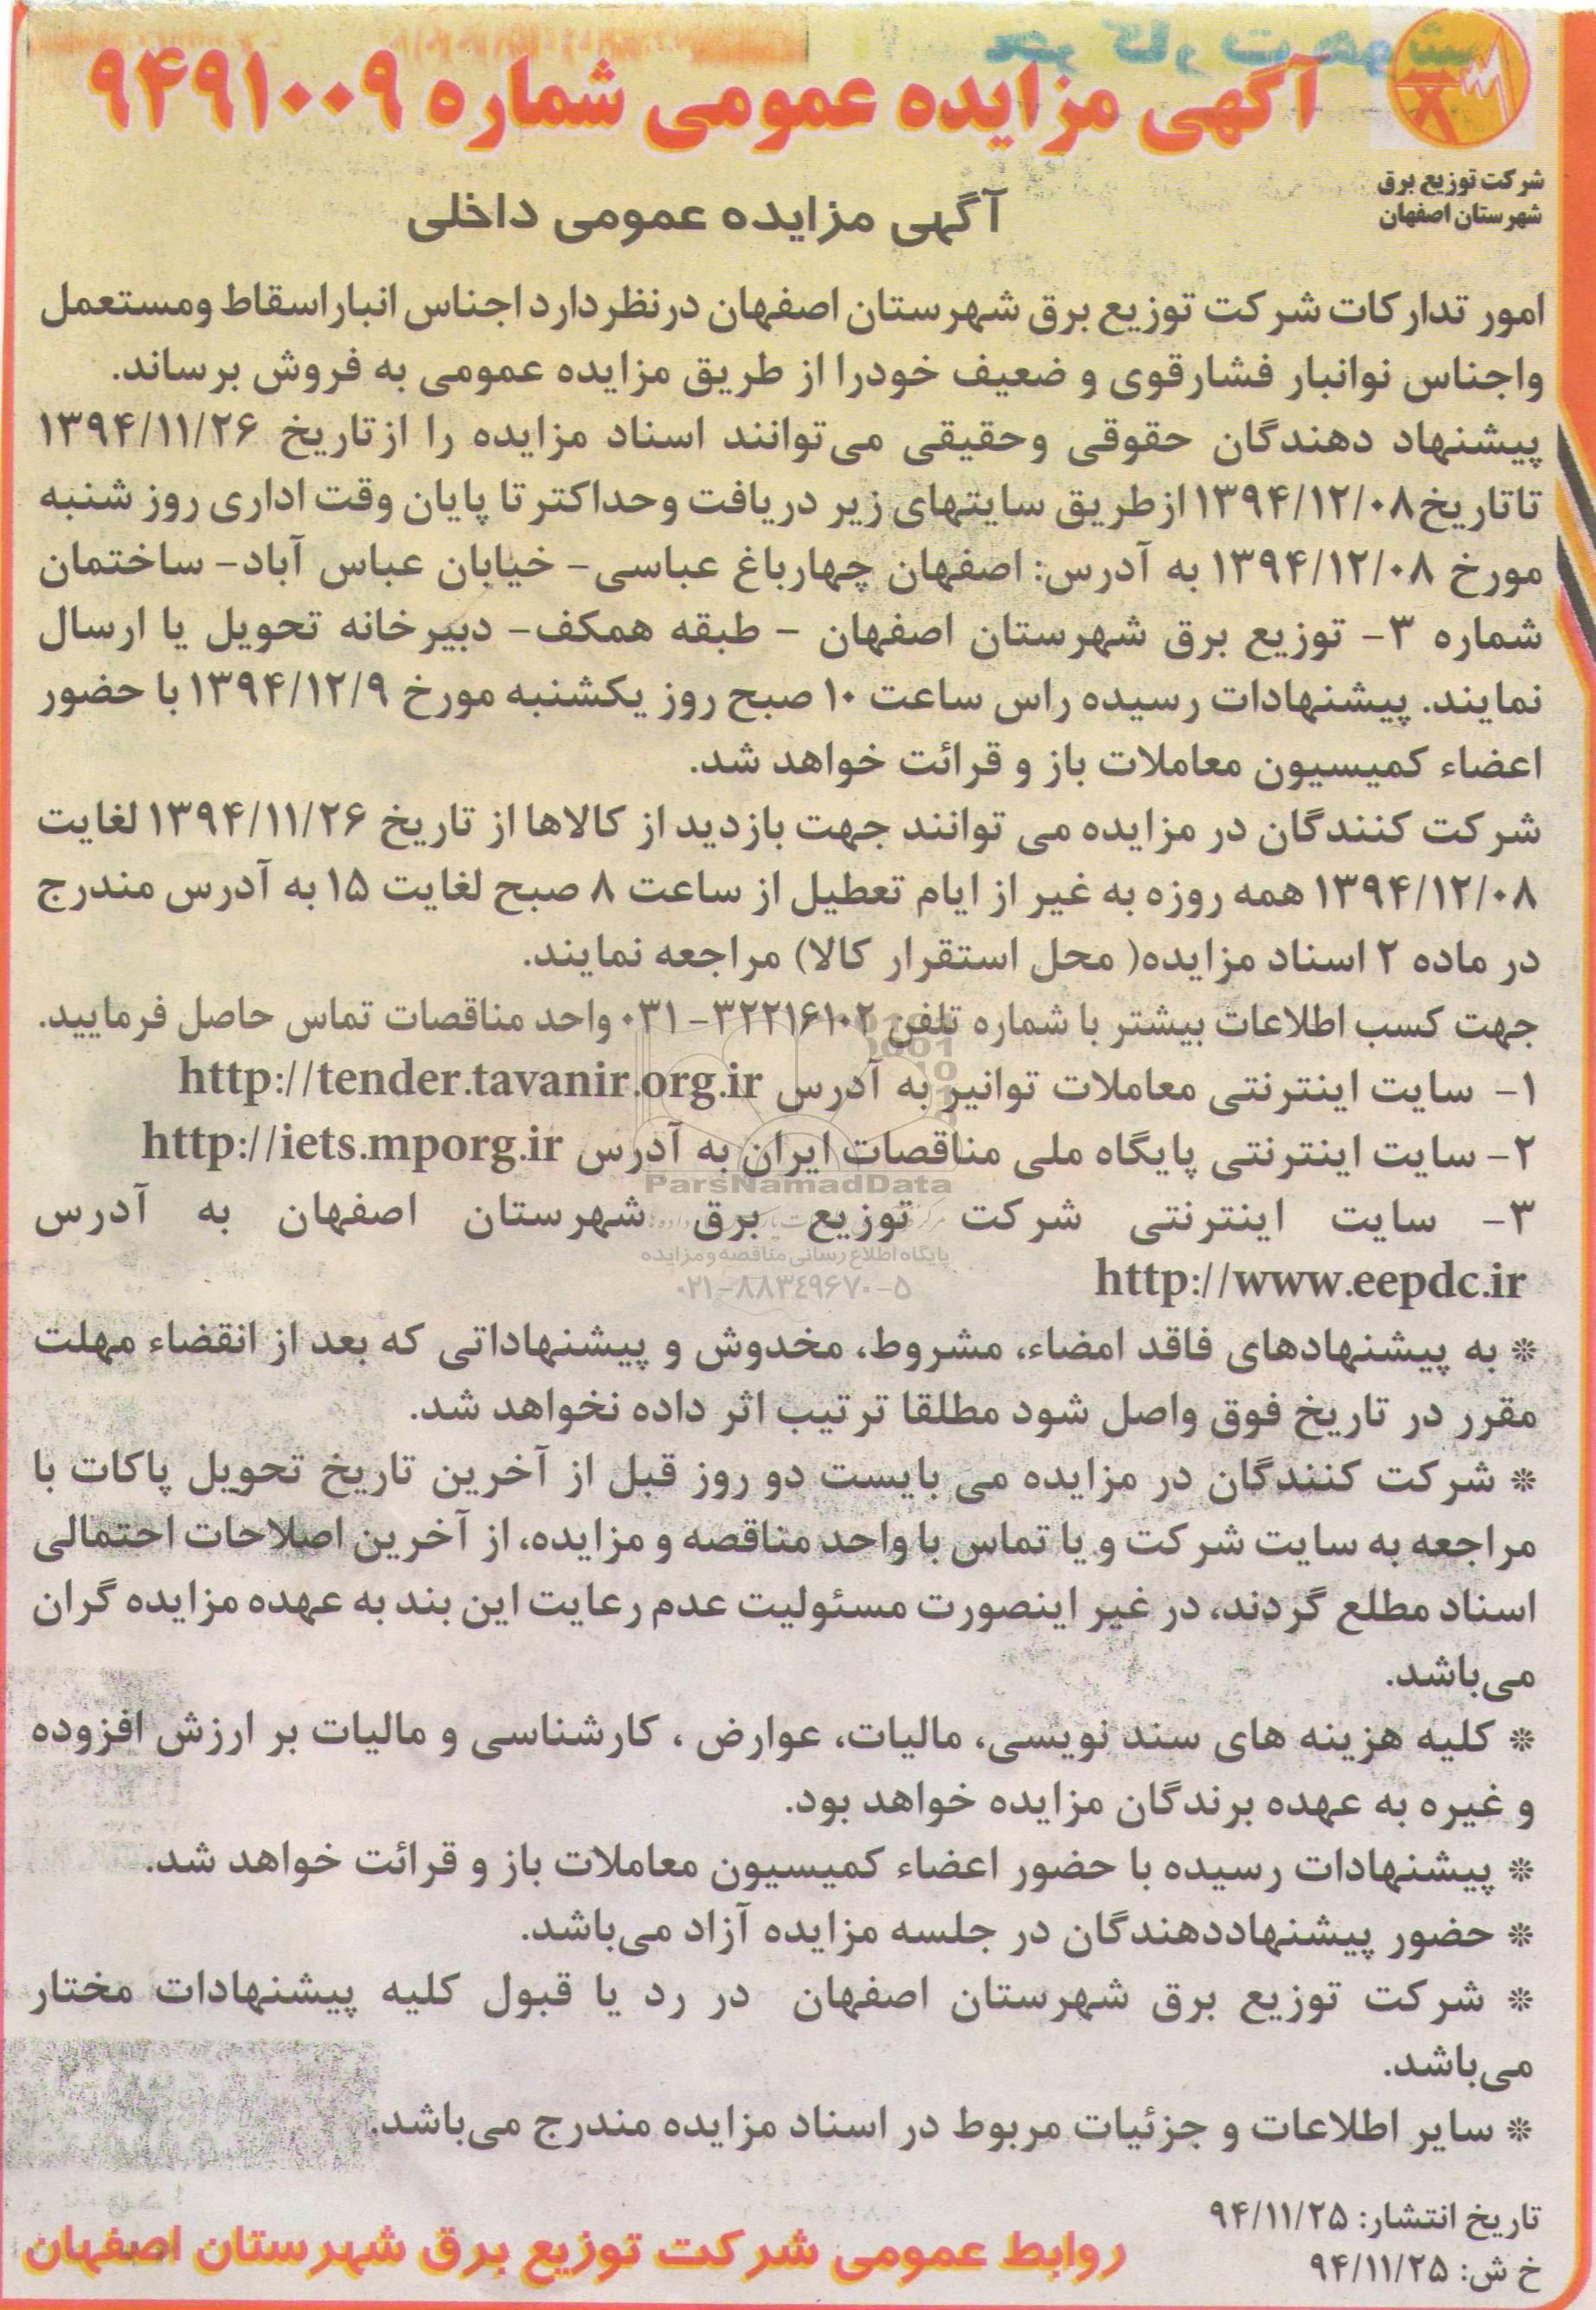 آگهی مزایده عمومی شماره ۹۴۹۱۰۰۹
شرکت توزیع برق
شهرستان اصفهان
آگهی مزایده عمومی داخلی
امور تدارکات شرکت توزیع برق شهرستان اصفهان درنظر دارد اجناس انبار اسقاط ومستعمل
واجناس نوانبار فشارقوی و ضعیف خودرا از طریق مزایده عمومی به فروش برساند.
پیشنهاد دهندگان حقوقی وحقیقی می‌توانند اسناد مزایده را از تاریخ ۱۳۹۴/۱۱/۲۶
تاتاریخ ۱۳۹۴/۱۲/۰۸ ازطریق سایتهای زیر دریافت وحداکثر تا پایان وقت اداری روز شنبه
مورخ ۱۳۹۴/۱۲/۰۸ به آدرس: اصفهان چهارباغ عباسی- خیابان عباس آباد- ساختمان
شماره ۳- توزیع برق شهرستان اصفهان - طبقه همکف- دبیرخانه تحویل یا ارسال
نمایند. پیشنهادات رسیده راس ساعت ۱۰ صبح روز یکشنبه مورخ ۱۳۹۴/۱۲/۹ با حضور
اعضاء کمیسیون معاملات باز و قرائت خواهد شد.
شرکت کنندگان در مزایده می توانند جهت بازدید از کالاها از تاریخ ۱۳۹۴/۱۱/۲۶ لغایت
۱۳۹۴/۱۲/۰۸ همه روزه به غیر از ایام تعطیل از ساعت ۸ صبح لغایت ۱۵ به آدرس مندرج
در ماده ۲ اسناد مزایده( محل استقرار کالا) مراجعه نمایند.
جهت کسب اطلاعات بیشتر با شماره تلفن ۳۲۲۱۶۱۰۲-۰۳۱ واحد مناقصات تماس حاصل فرمایید.
۱- سایت اینترنتی معاملات توانیر به آدرس http://tender.tavanir.org.ir
۲- سایت اینترنتی پایگاه ملی مناقصات ایران به آدرس http://iets.mporg.ir
ParsNamadData
۳- سایت اینترنتی شرکت توزیع برق شهرستان اصفهان به آدرس
پایگاه اطلاع رسانی مناقصه و مزایده
http://www.eepdc.ir
۰۲۱-۸۸۳۴۹۶۷۰-۵
* به پیشنهادهای فاقد امضاء، مشروط، مخدوش و پیشنهاداتی که بعد از انقضاء مهلت
مقرر در تاریخ فوق واصل شود مطلقا ترتیب اثر داده نخواهد شد.
* شرکت کنندگان در مزایده می بایست دو روز قبل از آخرین تاریخ تحویل پاکات با
مراجعه به سایت شرکت و یا تماس با واحد مناقصه و مزایده، از آخرین اصلاحات احتمالی
اسناد مطلع گردند، در غیر اینصورت مسئولیت عدم رعایت این بند به عهده مزایده گران
می‌باشد.
* کلیه هزینه های سند نویسی، مالیات، عوارض ، کارشناسی و مالیات بر ارزش افزوده
و غیره به عهده برندگان مزایده خواهد بود.
* پیشنهادات رسیده با حضور اعضاء کمیسیون معاملات باز و قرائت خواهد شد.
* حضور پیشنهاددهندگان در جلسه مزایده آزاد می‌باشد.
* شرکت توزیع برق شهرستان اصفهان در رد یا قبول کلیه پیشنهادات مختار
می‌باشد.
* سایر اطلاعات و جزئیات مربوط در اسناد مزایده مندرج می‌باشد.
تاریخ انتشار: ۹۴/۱۱/۲۵
خ ش: ۹۴/۱۱/۲۵
روابط عمومی شرکت توزیع برق شهرستان اصفهان